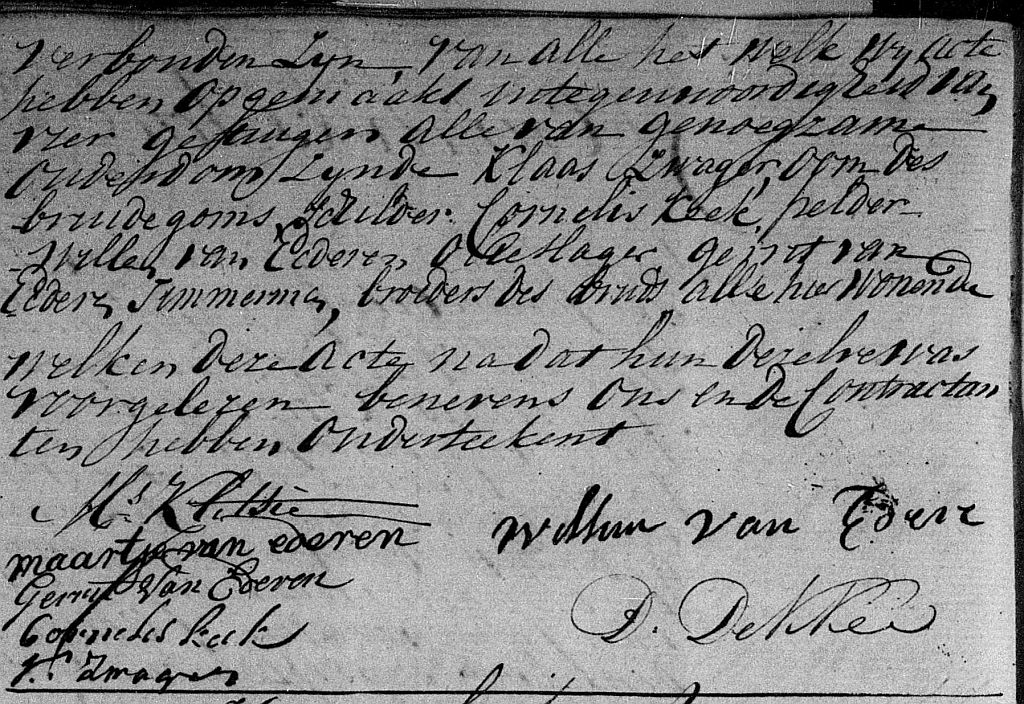 verbonden Zyn, van alle het welk wy acte
hebben opgemaakt integenwoordigheid van
vier getuigen alle van genoegzame
ouderdom Zynde Klaas Zwager, oom des
bruidegoms, Schilder. Cornelis Keek, pelder
Willem van Ederen Oliestager gerrit van
Ederen Timmerman, broeders des bruids alle hier wonende
welken deze acte na dat hun dezelve was
voorgelezen benevens ons en de Contractan
ten hebben onderteekent
Ms. K
maartje van ederen
Willem van Edere
Gerrit Van Ederen
D. Dekker
Cornelis keek
K. Zwager